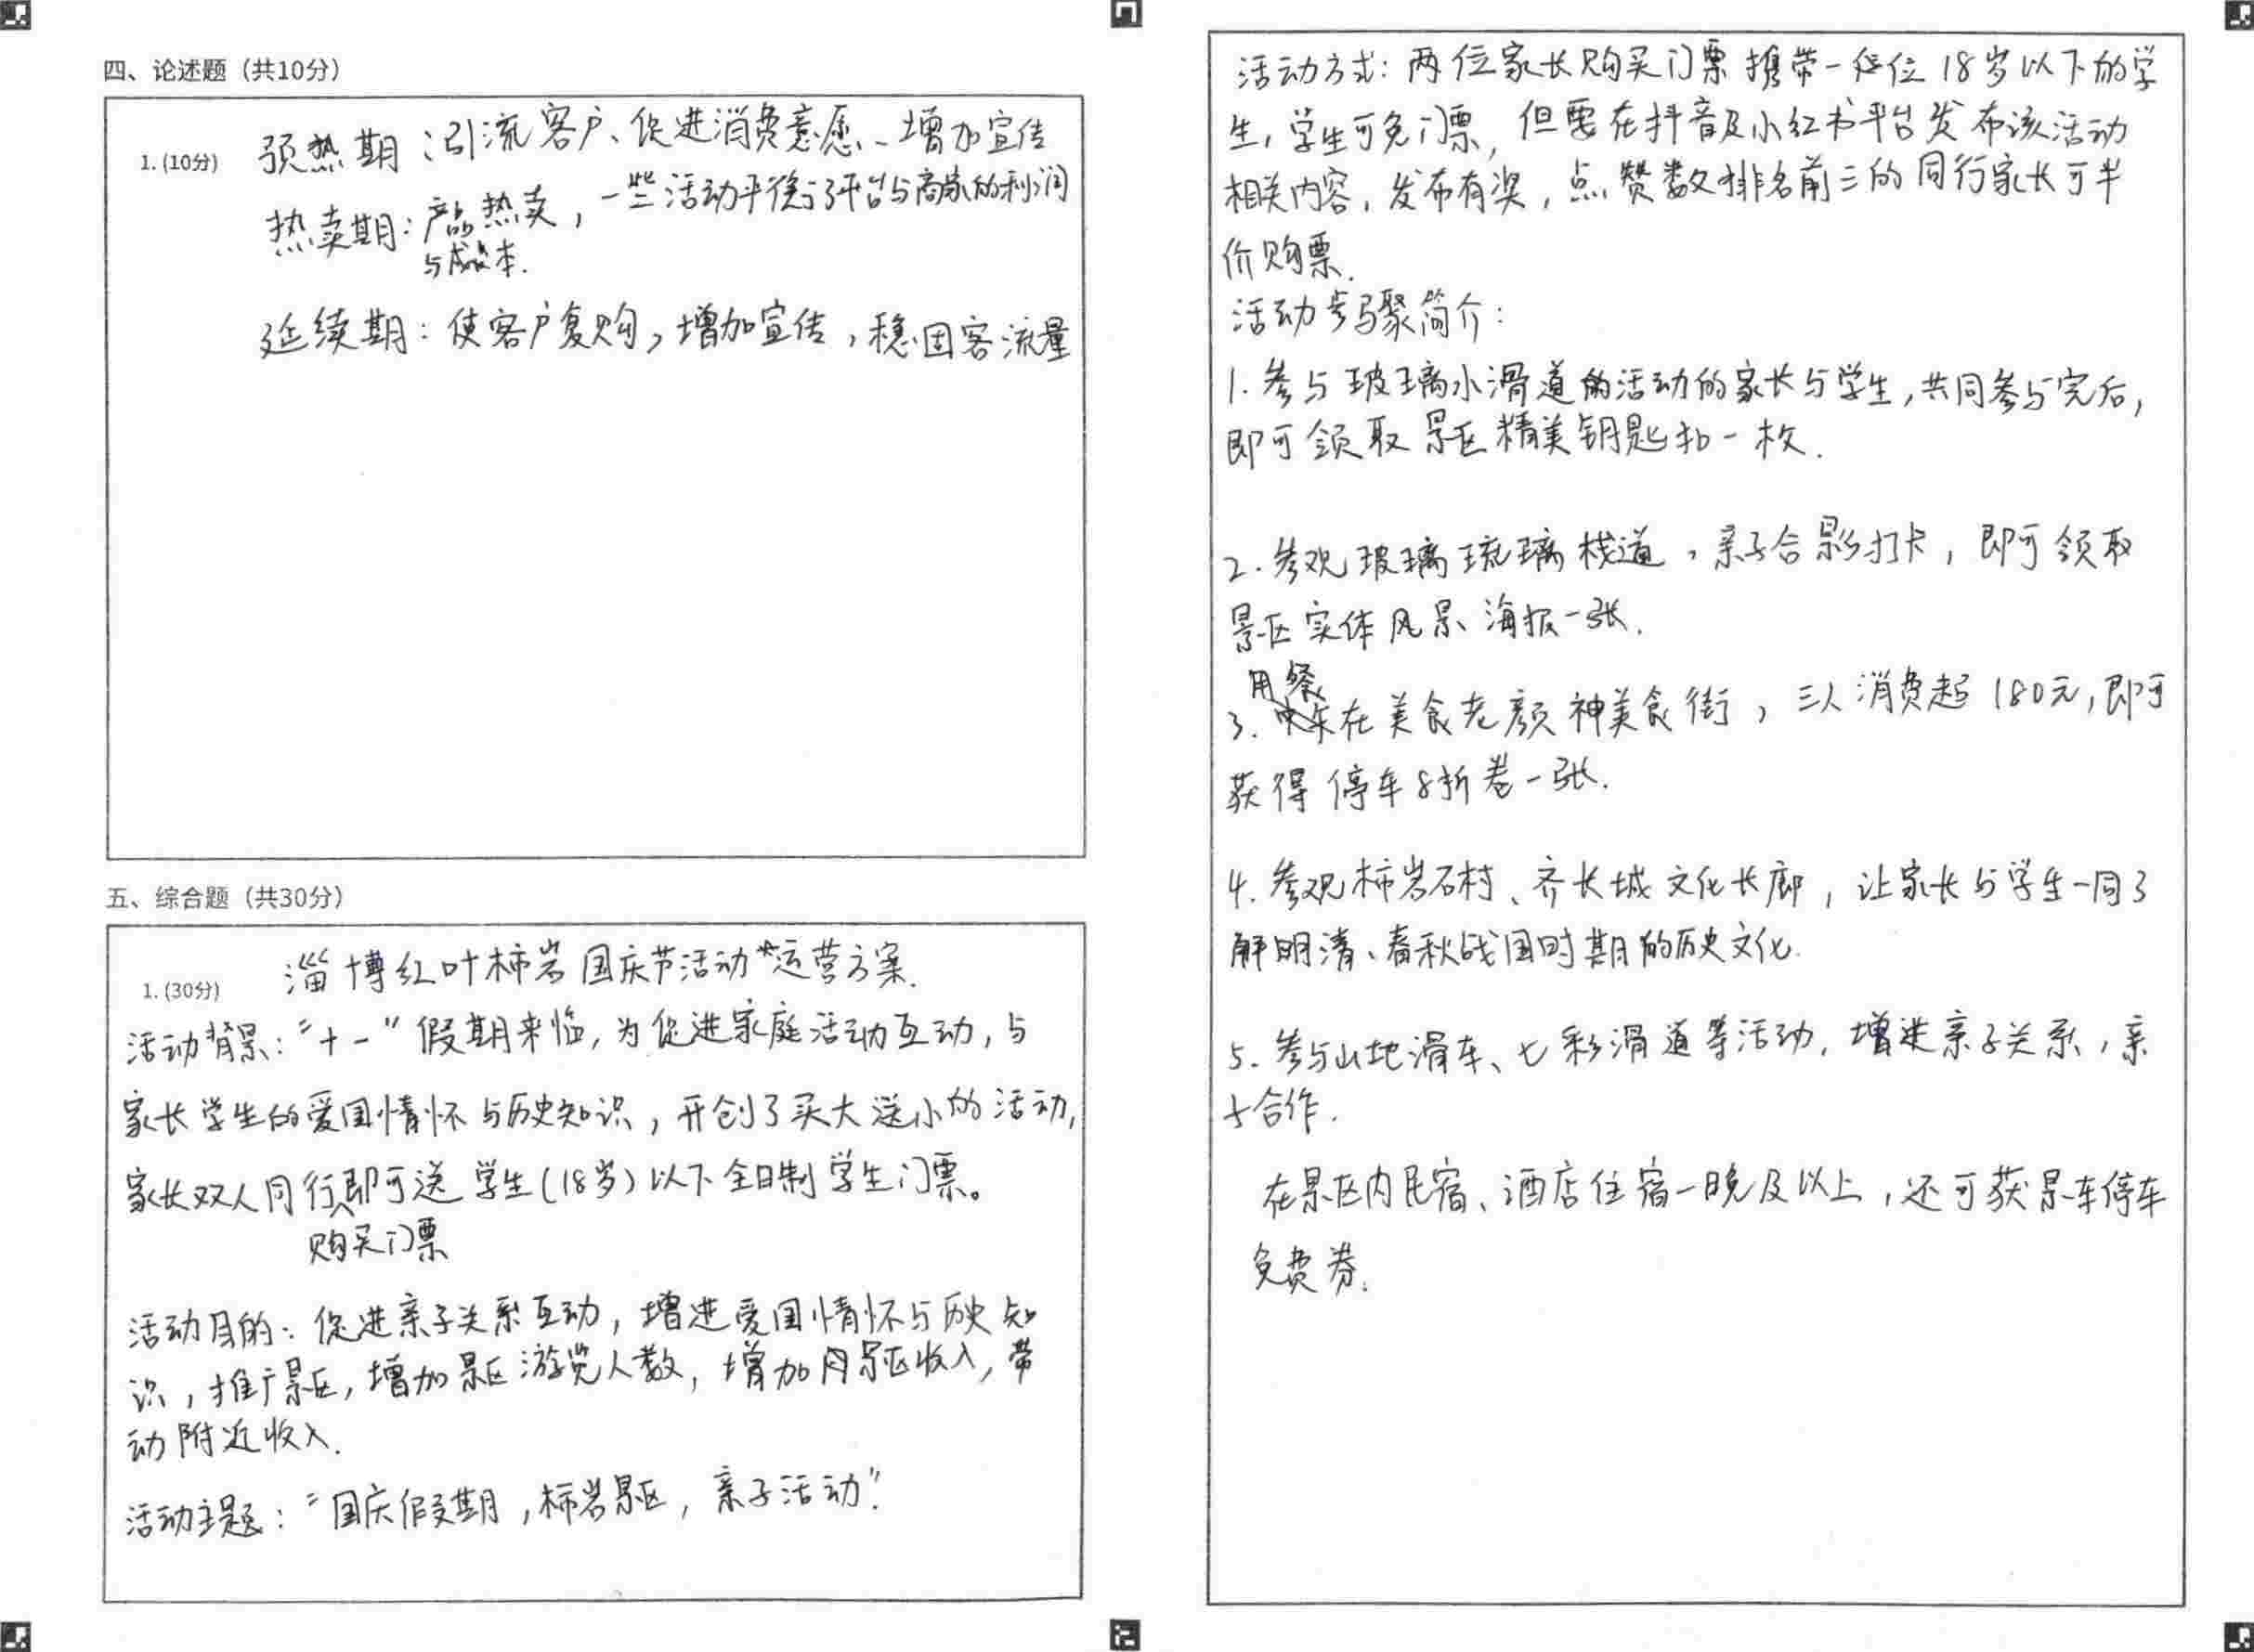 四、论述题（共10分）
1. (10分) 预热期：引流客户、促进消费意愿、增加宣传
热卖期：产品热卖，一些活动平衡了平台与商家的利润
与成本.
延续期：使客户复购，增加宣传，稳固客流量
五、综合题（共30分）
1. (30分) 淄博红叶柿岩国庆节活动运营方案.
活动背景：“十一”假期来临，为促进家庭活动互动，与
家长学生的爱国情怀与历史知识，开创了买大送小的活动，
家长双人同行即可送学生(18岁)以下全日制学生门票。
购买门票
活动目的：促进亲子关系互动，增进爱国情怀与历史知
识，推广景区，增加景区游览人数，增加景区收入，带
动附近收入.
活动主题：“国庆假期，柿岩景区，亲子活动”.
活动方式：两位家长购买门票携带一位18岁以下的学
生，学生可免门票，但要在抖音及小红书平台发布该活动
相关内容，发布有奖，点赞数排名前三的同行家长可半
价购票.
活动步骤简介：
1. 参与玻璃水滑道的活动的家长与学生，共同参与完后，
即可领取景区精美钥匙扣一枚.
2. 参观玻璃琉璃栈道，亲子合影打卡，即可领取
景区实体风景海报一张.
用餐
3. 在美食老颜神美食街，三人消费超180元，即可
获得停车8折卷一张.
4. 参观柿岩石村、齐长城文化长廊，让家长与学生一同了
解明清、春秋战国时期的历史文化.
5. 参与山地滑车、七彩滑道等活动，增进亲子关系，亲
子合作.
在景区内民宿、酒店住宿一晚及以上，还可获景车停车
免费券.